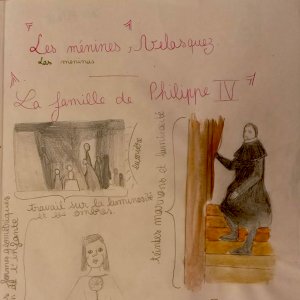 Les ménines, Velasquez
Las meninas
La famille de Philippe IV
lumière
travail sur la luminosité
et les ombres
teintes marrons et luminaire
formes géométriques
de l'enfante